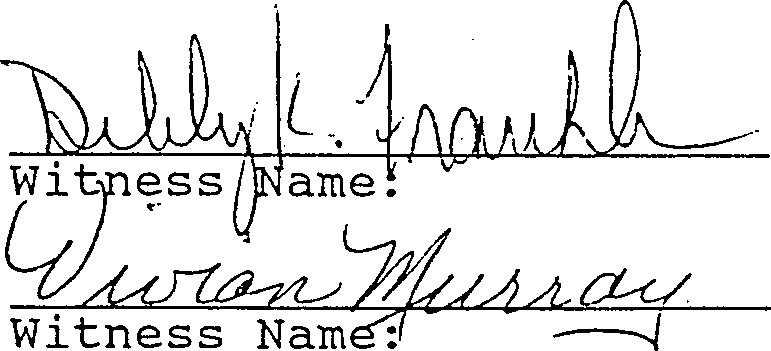 Debby K.
Witness Name:
Vivian Murray
Witness Name: